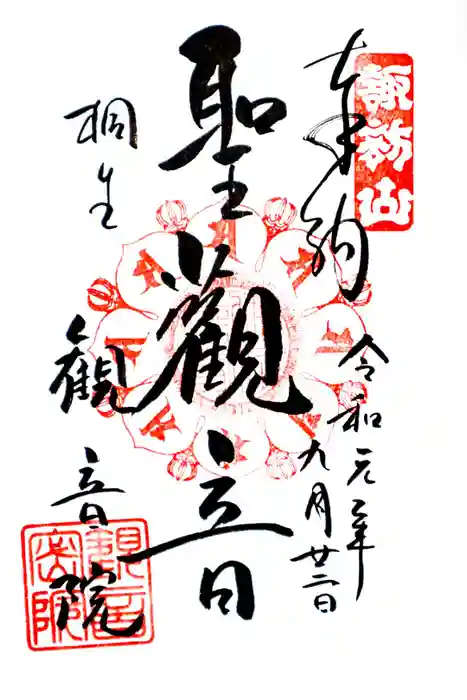 奉納
諏訪山
令和元年
九月廿二日
聖觀音
桐生
観音院